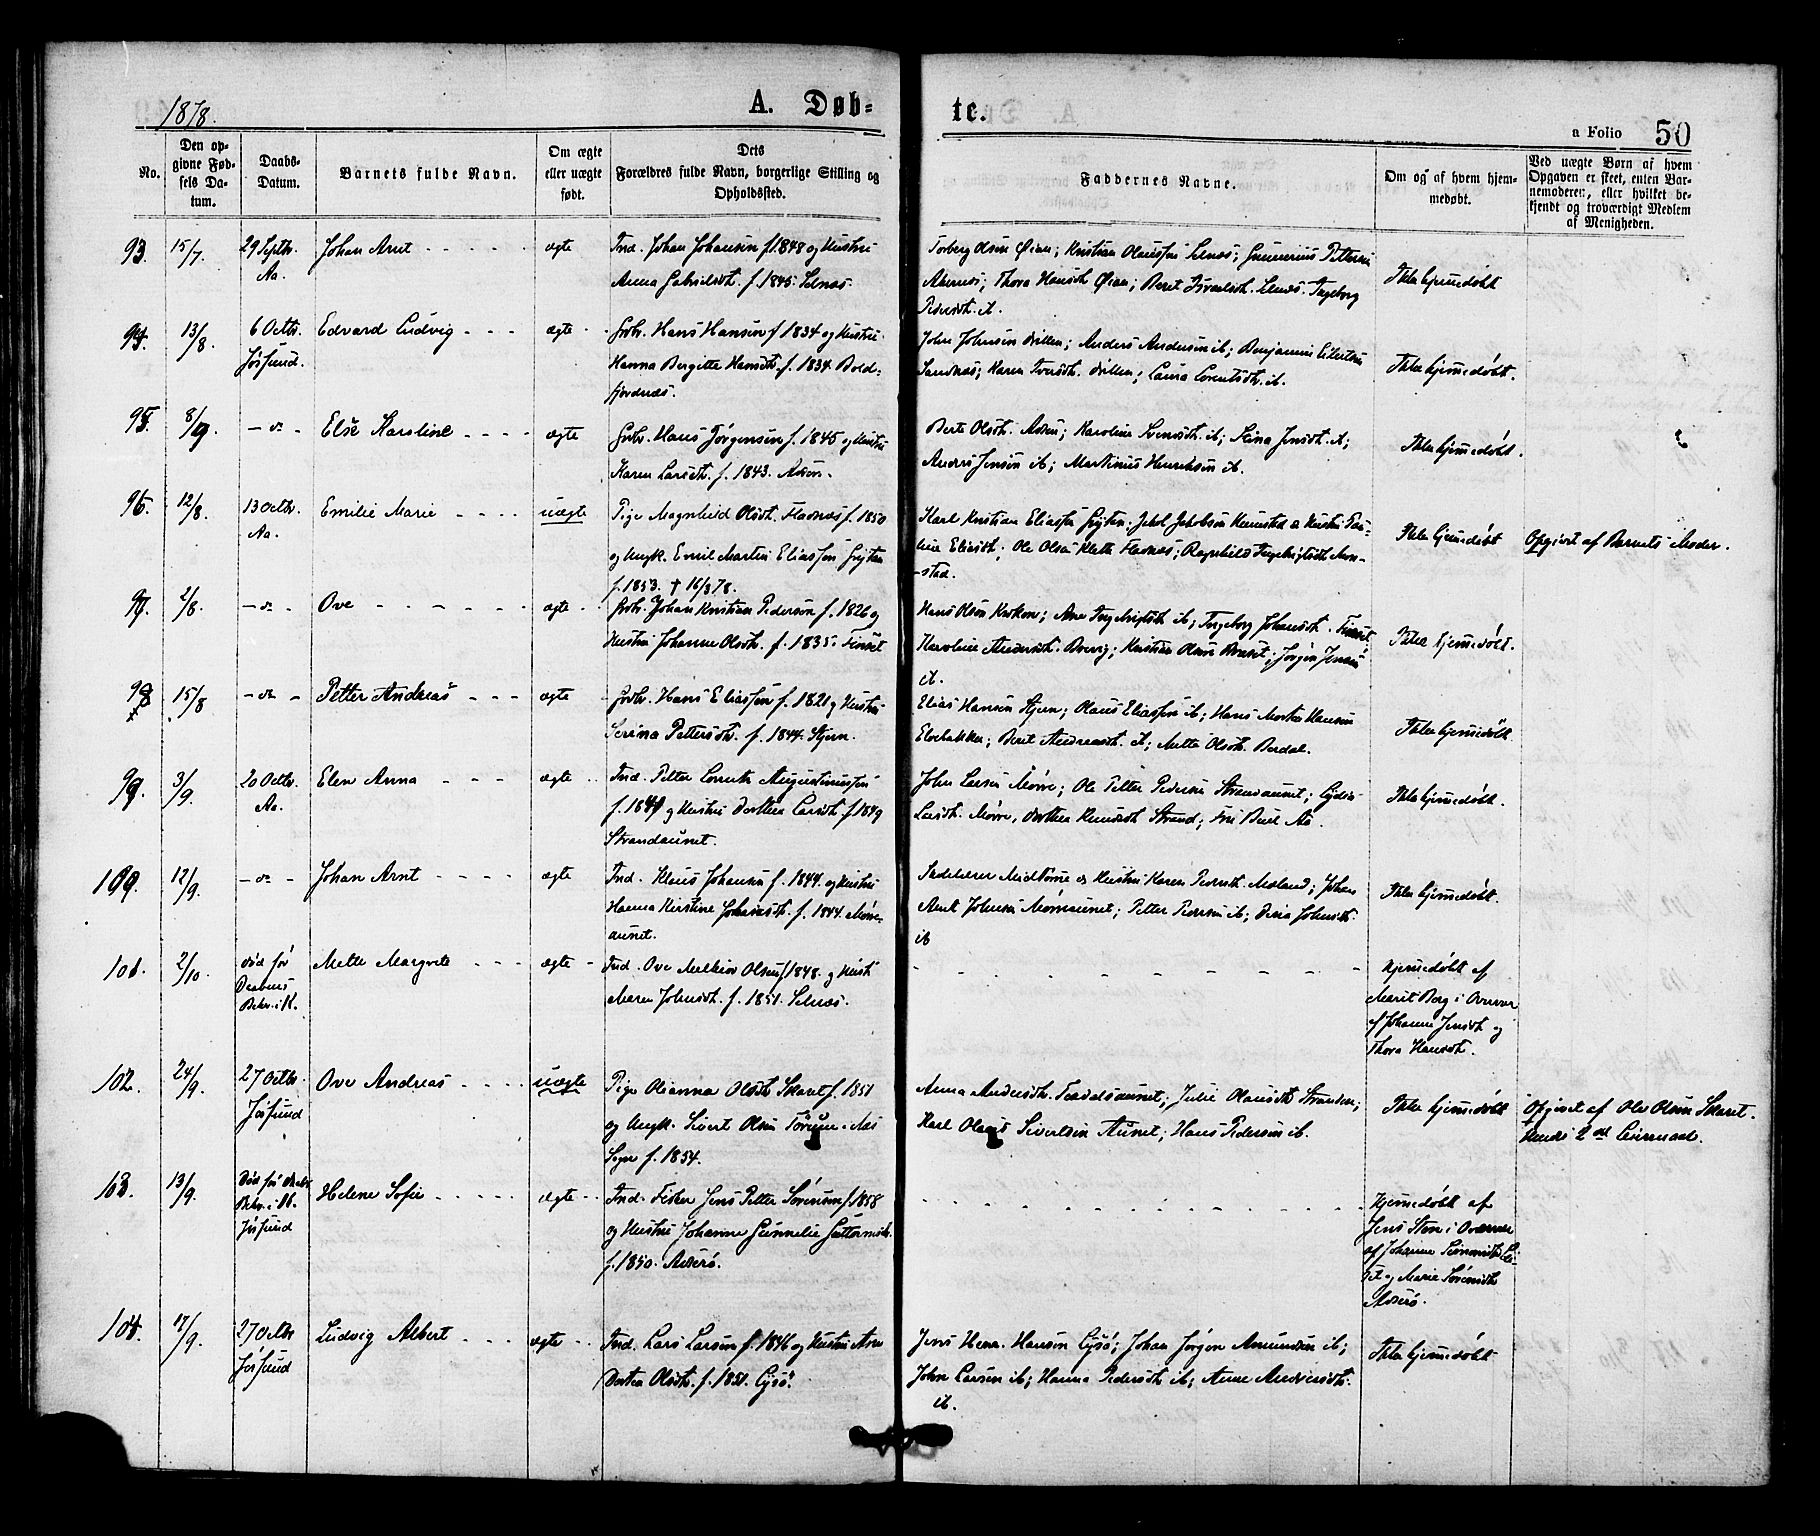 1878.
A. Døb-
te.
a Folio 50
No.
Den op-
givne Fød-
sels Da-
tum.
Daabs-
Datum.
Barnets fulde Navn.
Om ægte
eller uægte
født.
Dets
Forældres fulde Navn, borgerlige Stilling og
Opholdssted.
Faddernes Navne.
Om og af hvem hjem-
medøbt.
Ved uægte Børn af hvem
Opgaven er skeet, enten Bar-
nemoderen, eller hvilket be-
kjendt og troværdigt Medlem
af Menigheden.
93. 15/7 29 Septbr. Johan Arnt ægte Ind. Johan Johansen f. 1848 og Hustru
Aa. Anna Gabrielsdt. f. 1845. Selnæs.
Torberg Olsen Øian; Kristian Olaussen Selnæs; Gunnerius Pettersen
Thora Hansdt. Øian; Beret Israelsdt. Selnæs. Ingeborg
Pedersdt. it.
Ikke hjemmedøbt
94. 13/8. 6 Octbr. Edvard Ludvig ægte Grbr. Hans Hansen f. 1834 og Hustru
Jøssund. Hanna Bergitte Hansdt. f. 1834. Bold-
fjordnæs.
John Johnsen; Anders Andersen ib; Benjamin Eilertsen
Sandnæs; Karen Iversdt.; Laura Lorentsdt. it.
Ikke hjemmedøbt.
95. 8/9 -do- Else Karoline ægte Grbr. Hans Jørgensen f. 1845 og Hustru
Karen Larsdt. f. 1843.
Berte Olsdt.; Karoline Svendsdt. it; Stina Jensdt. it;
Anders Jensen ib; Martinus Henriksen it.
Ikke hjemmedøbt.
96. 12/8. 13 Octbr. Emilie Marie uægte Pige Magnhild Olsdt. Fladnæs f. 1850
Aa. og Ungk. Emil Martin Eliassen
f. 1853. † 16/3 78.
Karl Kristian Eliassen; Jakob Jakobsen & Hustru Pau-
line Eliasdt; Ole Olsen Klette Fladnæs; Ragnhild Ingebrigtsdt. Mon-
stad.
Ikke hjemmedøbt
Opgivet af Barnets Moder.
97. 2/8. -do- Ove ægte Grbr. Johan Kristian Pedersen f. 1826 og
Hustru Johanne Olsdt. f. 1835. Finset
Hans Olsen Krokan; Ane Ingebrigtsdt. ib; Ingeborg Johansdt. Finset
Karoline Andersdt.; Kristian Olsen; Jørgen Jensen
it.
Ikke hjemmedøbt.
98 15/8 -do- Petter Andreas ægte Grbr. Hans Eliassen f. 1821 og Hustru
Serina Pettersdt. f. 1844. Stjern.
Elias Hansen Stjern; Olaus Eliassen ib; Hans Morten Hansen
Elvebakken; Beret Andreasdt. it; Mette Olsdt. Berdal.
Ikke hjemmedøbt.
99. 3/9. 20 Octbr. Elen Anna ægte Ind. Petter Lorents Augustinussen
Aa. f. 1849 og Hustru Dorthea Larsdt. f. 1849
Strandaunet.
John Larsen Mørre; Ole Petter Pedersen Strandaunet; Lydia
Larsdt. Mørre, Dorthea Knudsdt. Strand; Frk Buul Aa.
Ikke hjemmedøbt.
100. 12/9. -do- Johan Arnt ægte Ind. Klaus Johansen f. 1844. og Hustru
Hanna Kirstine Johansdt. f. 1844. Mørre-
aunet.
Kirkelærer Midttømme & Hustru Karen Pedersdt. Moland; Johan
Arnt Johnsen Mørreaunet; Petter Pedersen ib; Johnsdt.
ib
Ikke hjemmedøbt.
101. 2/10. død før Mette Margrete ægte Ind. Ove Melkior Olsen f. 1848. og Hustr
Daabens
Bekr. i K. Maren Johnsdt. f. 1851. Selnæs.
Hjemmedøbt af
Marit Berg i Overvær
af Johanne Jensdt. og
Thora Hansdt.
102. 24/9. 27 Octbr. Ove Andreas uægte Pige Olianna Olsdt. Skaret f. 1851
Jøssund og Ungk. Sivert Olsen Næs
Sogn f. 1854.
Anna Andersdt.; Julie Olausdt. Stranden;
Karl Olaus Sivertsen Aunet; Hans Pedersen ib.
Ikke hjemmedøbt
Opgivet af Ole Olsen Skaret.
Hendes 2det Leiermaal.
103. 13/9. Død før Daabs Helene Sofie ægte Ind. Fisker Jens Petter Sørensen f. 1858
Bekr. i K.
Jøssund og Hustru Johanne Gunnelie Guttormsdt.
f. 1850. Asserø.
Hjemmedøbt af
Jens Sten i Overvær
af Johanne Simonsdt.
og Marie Sørensdt.
Asserø.
104. 17/9. 27 Octbr Ludvig Albert ægte Ind. Lars Larsen f. 1846 og Hustru Ane
Jøssund Dortea Olsdt. f. 1851. Lysø.
Jens Henr. Hansen Lysø; Johan Jørgen Amundsen ib;
John Larsen ib; Hanna Pedersdt. ib; Anne Andersdt.
it.
Ikke hjemmedøbt